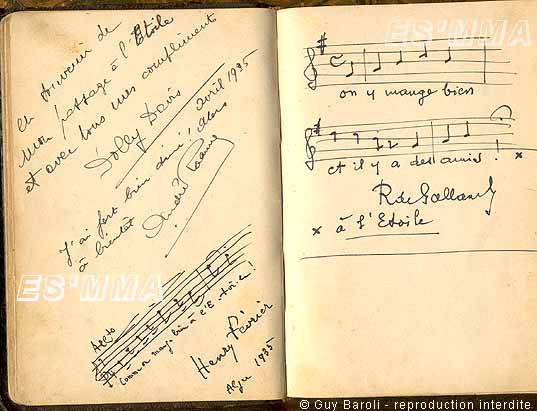 En souvenir de
mon passage à l'Etoile
et avec tous mes compliments
Dolly Davis
avril 1935
J'ai fort bien dîné, alors
à bientôt
André
Comme on mange bien à l'E-toi-le!
Henry Février
Alger 1935
on y mange bien
et il y a des amis! x
R de Galland
x à l'Etoile
ES'MMA
ES'MMA
© Guy Baroli - reproduction interdite